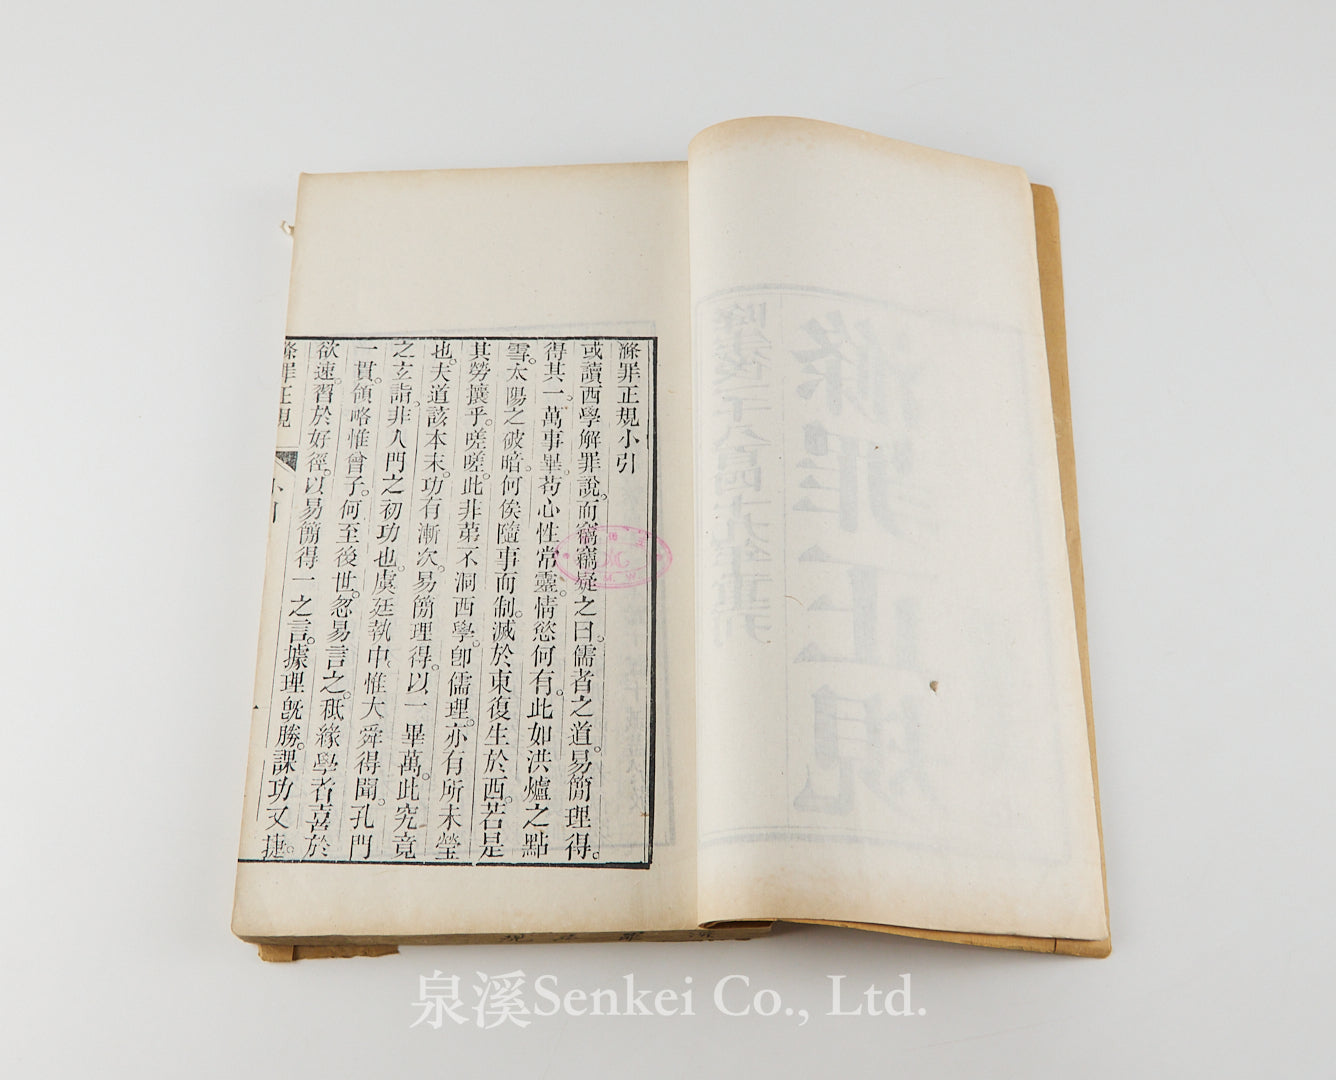 滌罪正規小引
或讀西學解罪說。而竊竊疑之曰。儒者之道。易簡理得。
得其一。萬事畢。苟心性常靈。情慾何有。此如洪爐之點
雪。太陽之破暗。何俟隨事而制。滅於東復生於西。若是
其勞攘乎。嗟嗟。此非第不洞西學。卽儒理。亦有所未瑩
也。夫道該本末。功有漸次。易簡理得。以一畢萬。此究竟
之玄詣。非入門之初功也。虞廷執中。惟大舜得聞。孔門
一貫。領略惟曾子。何至後世。忽易言之。秪緣學者喜於
欲速。習於好徑。以易簡得一之言。據理旣勝。課功又捷。
滌罪正規 小引
滌罪正規
降生後一千八百四十九年重刊
泉溪Senkei Co., Ltd.